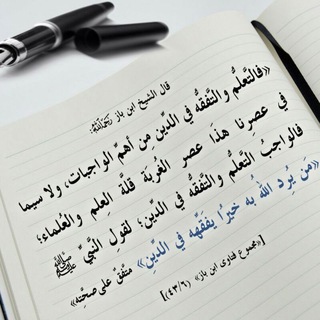 قال الشيخ ابن باز رَحِمَهُ اللَّهُ:
«فالتَّعلُّم والتَّفقُّه في الدِّين مِن أهمِّ الواجبات، ولا سيما
في عصرِنا هذَا عصر الغُربة قلَّة العِلم والعُلماء؛
فالواجبُ التَّعلُّم والتَّفقُّه في الدِّين؛ لقولِ النَّبيِّ ﷺ
«مَن يُردِ اللهُ به خيرًا يفقِّهه في الدِّين» متَّفق على صحَّتِه»
[«مجموع فتاوى ابن باز» (٤٣/٦)]